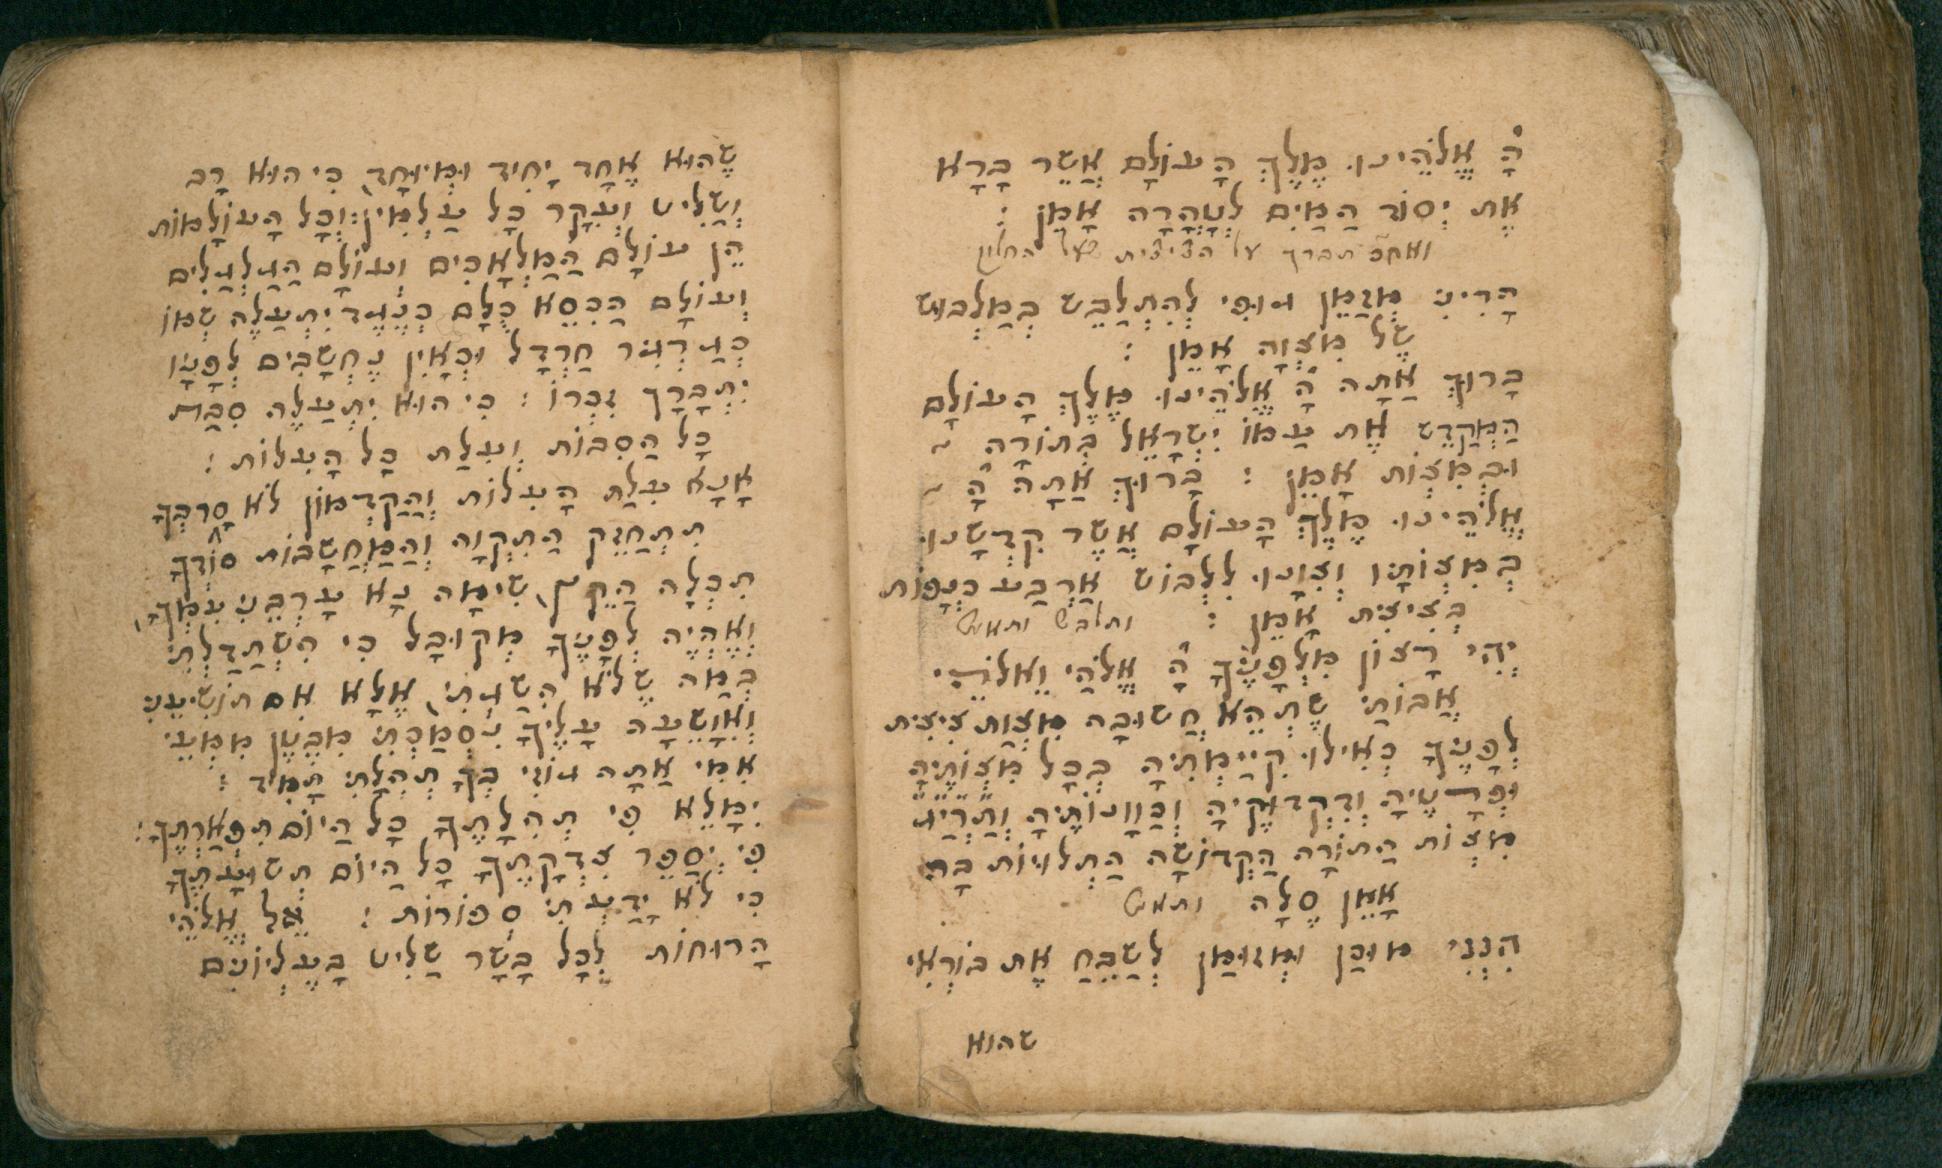 הָ֯ אֱלֹהֵינוּ מֶלֶךְ הָעוֹלָם אֲשֵׁר בָּרָא
אֶת יְסוֹד הַמַּיִם לְטָהֳרָה אָמֵן :
ואח״כ תברך על הציצית של החלוק
הָרֵינִי מְזַמֵּן גוּפִי לְהִתְלַבֵּשׁ בְּמַלְבּוּשׁ
שֶׁל מִצְוָה אָמֵן :
בָּרוּךְ אַתָּה הָ֯ אֱלֹהֵינוּ מֶלֶךְ הָעוֹלָם
הַמְקַדֵּשׁ אֶת עַמּוֹ יִשְׂרָאֵל בְּתוֹרָה
וּבְמִצְוֹת אָמֵן : בָּרוּךְ אַתָּה הָ֯
אֱלֹהֵינוּ מֶלֶךְ הָעוֹלָם אֲשֶׁר קִדְּשָׁנוּ
בְּמִצְוֹתָיו וְצִוָּנוּ לִלְבּוֹשׁ אַרְבַּע כְּנָפוֹת
בְּצִיצִית אָמֵן : ותלבש ותאמ׳
יְהִי רָצוֹן מִלְּפָנֶיךָ הָ֯ אֱלֹהַי וֵאלֹהֵי
אֲבוֹתַי שֶׁתְּהֵא חֲשׁוּבָה מִצְוַת צִיצִית
לְפָנֶיךָ כְּאִילוּ קִיַּימְתִּיהָ בְּכָל מִצְוֹתֶיהָ
וּפְרָטֶיהָ וְדִקְדּוּקֶיהָ וְכַוָּונוֹתֶיהָ וְתַרְיַ״ג
מִצְוֹת הַתּוֹרָה הַקְּדוֹשָׁה הַתְּלוּיוֹת בָּהּ
אָמֵן סֶלָה ותאמ׳
הִנְנִי מוּכַן וּמְזוּמַן לְשַׁבֵּחַ אֶת בּוֹרְאִי
שהוא
שֶׁהוּא אֶחָד יָחִיד וּמְיוּחָד כִּי הוּא רָב
וְשַׁלִּיט וְעִקָּר כָּל עַלְמִין: וְכָל הָעוֹלָמוֹת
הֵן עוֹלָם הַמַּלְאָכִים וְעוֹלָם הַגַּלְגַּלִּים
וְעוֹלָם הַכִּסֵּא כֻּלָּם כְּנֶגֶד יִתְעַלֶּה שְׁמוֹ
כְּגַרְגִּר חַרְדָּל וּכְאָיִן נֶחְשָׁבִים לְפָנָיו
יִתְבָּרָךְ זִכְרוֹ : כִּי הוּא יִתְעַלֶּה סִבַּת
כָּל הַסִּבּוֹת וְעִלַּת כָּל הָעִלּוֹת :
אָנָּא עִלַּת הָעִלּוֹת וְהַקַּדְמוֹן לֹא
תִתְחַזֵּק הַתִּקְוָה וְהַמַּחֲשָׁבוֹת סוֹדְךָ
תִּכְלָה הַקֵּץ שִׂימָה נָּא עָרְבֵנִי עִמְּךָ
וְאֶהְיֶה לְפָנֶיךָ מְקוּבָּל כִּי הִשְׁתַּדַּלְתִּי
בְּמַה שֶּׁלֹּא הִשַּׂגְתִּי אֶלָּא אִם תּוֹשִׁיעֵנִי
וְאִוָּשֵׁעָה עָלֶיךָ נִסְמַכְתִּי מִבֶּטֶן מִמְּעֵי
אִמִּי אַתָּה גוֹזִי בְּךָ תְהִלָּתִי תָמִיד :
יִמָּלֵא פִי תְּהִלָּתֶךָ כָּל הַיּוֹם תִּפְאַרְתֶּךָ :
פִּי יְסַפֵּר צִדְקָתֶךָ כָּל הַיּוֹם תְּשׁוּעָתֶךָ
כִּי לֹא יָדַעְתִּי סְפוֹרוֹת : אֵל אֱלֹהֵי
הָרוּחוֹת לְכָל בָּשָׂר שַׁלִּיט בָּעֶלְיוֹנִים